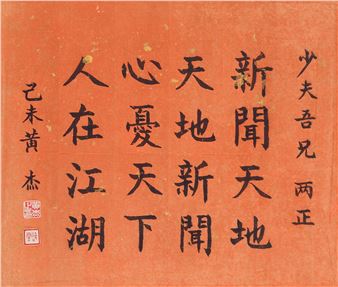 少夫吾兄 两正
新聞天地
天地新聞
心憂天下
人在江湖
己未黃杰